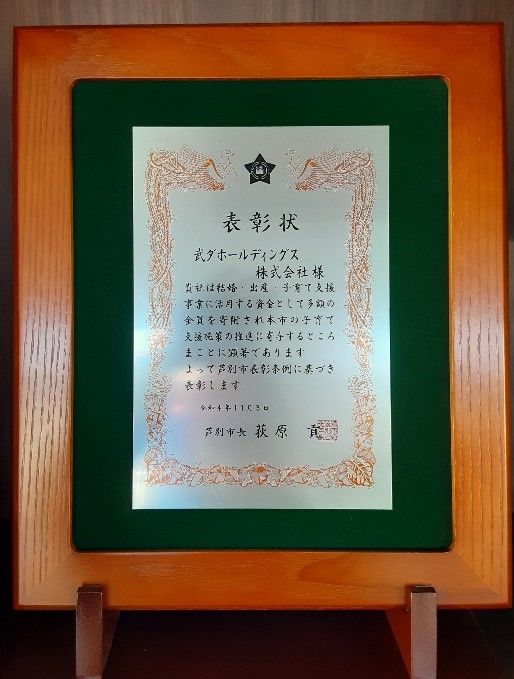 表彰状
武ダホールディングス
株式会社様
貴社は結婚・出産・子育て支援
事業に活用する資金として多額の
金員を寄附され本市の子育て
支援施策の推進に寄与するところ
まことに顕著であります
よって芦別市表彰条例に基づき
表彰します
令和4年11月3日
芦別市長 荻原 貢